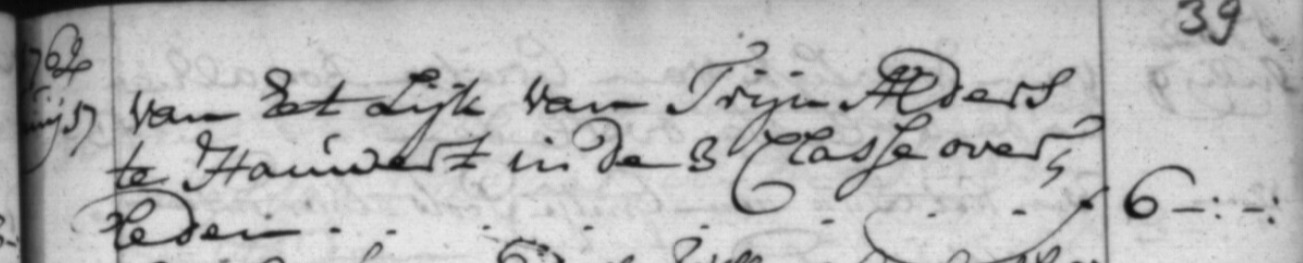 39
1764
van Et Lijk van Trijn Alders
te Hauwert in de 3 Classe over,
leden - - - - - - - 6 -:-: